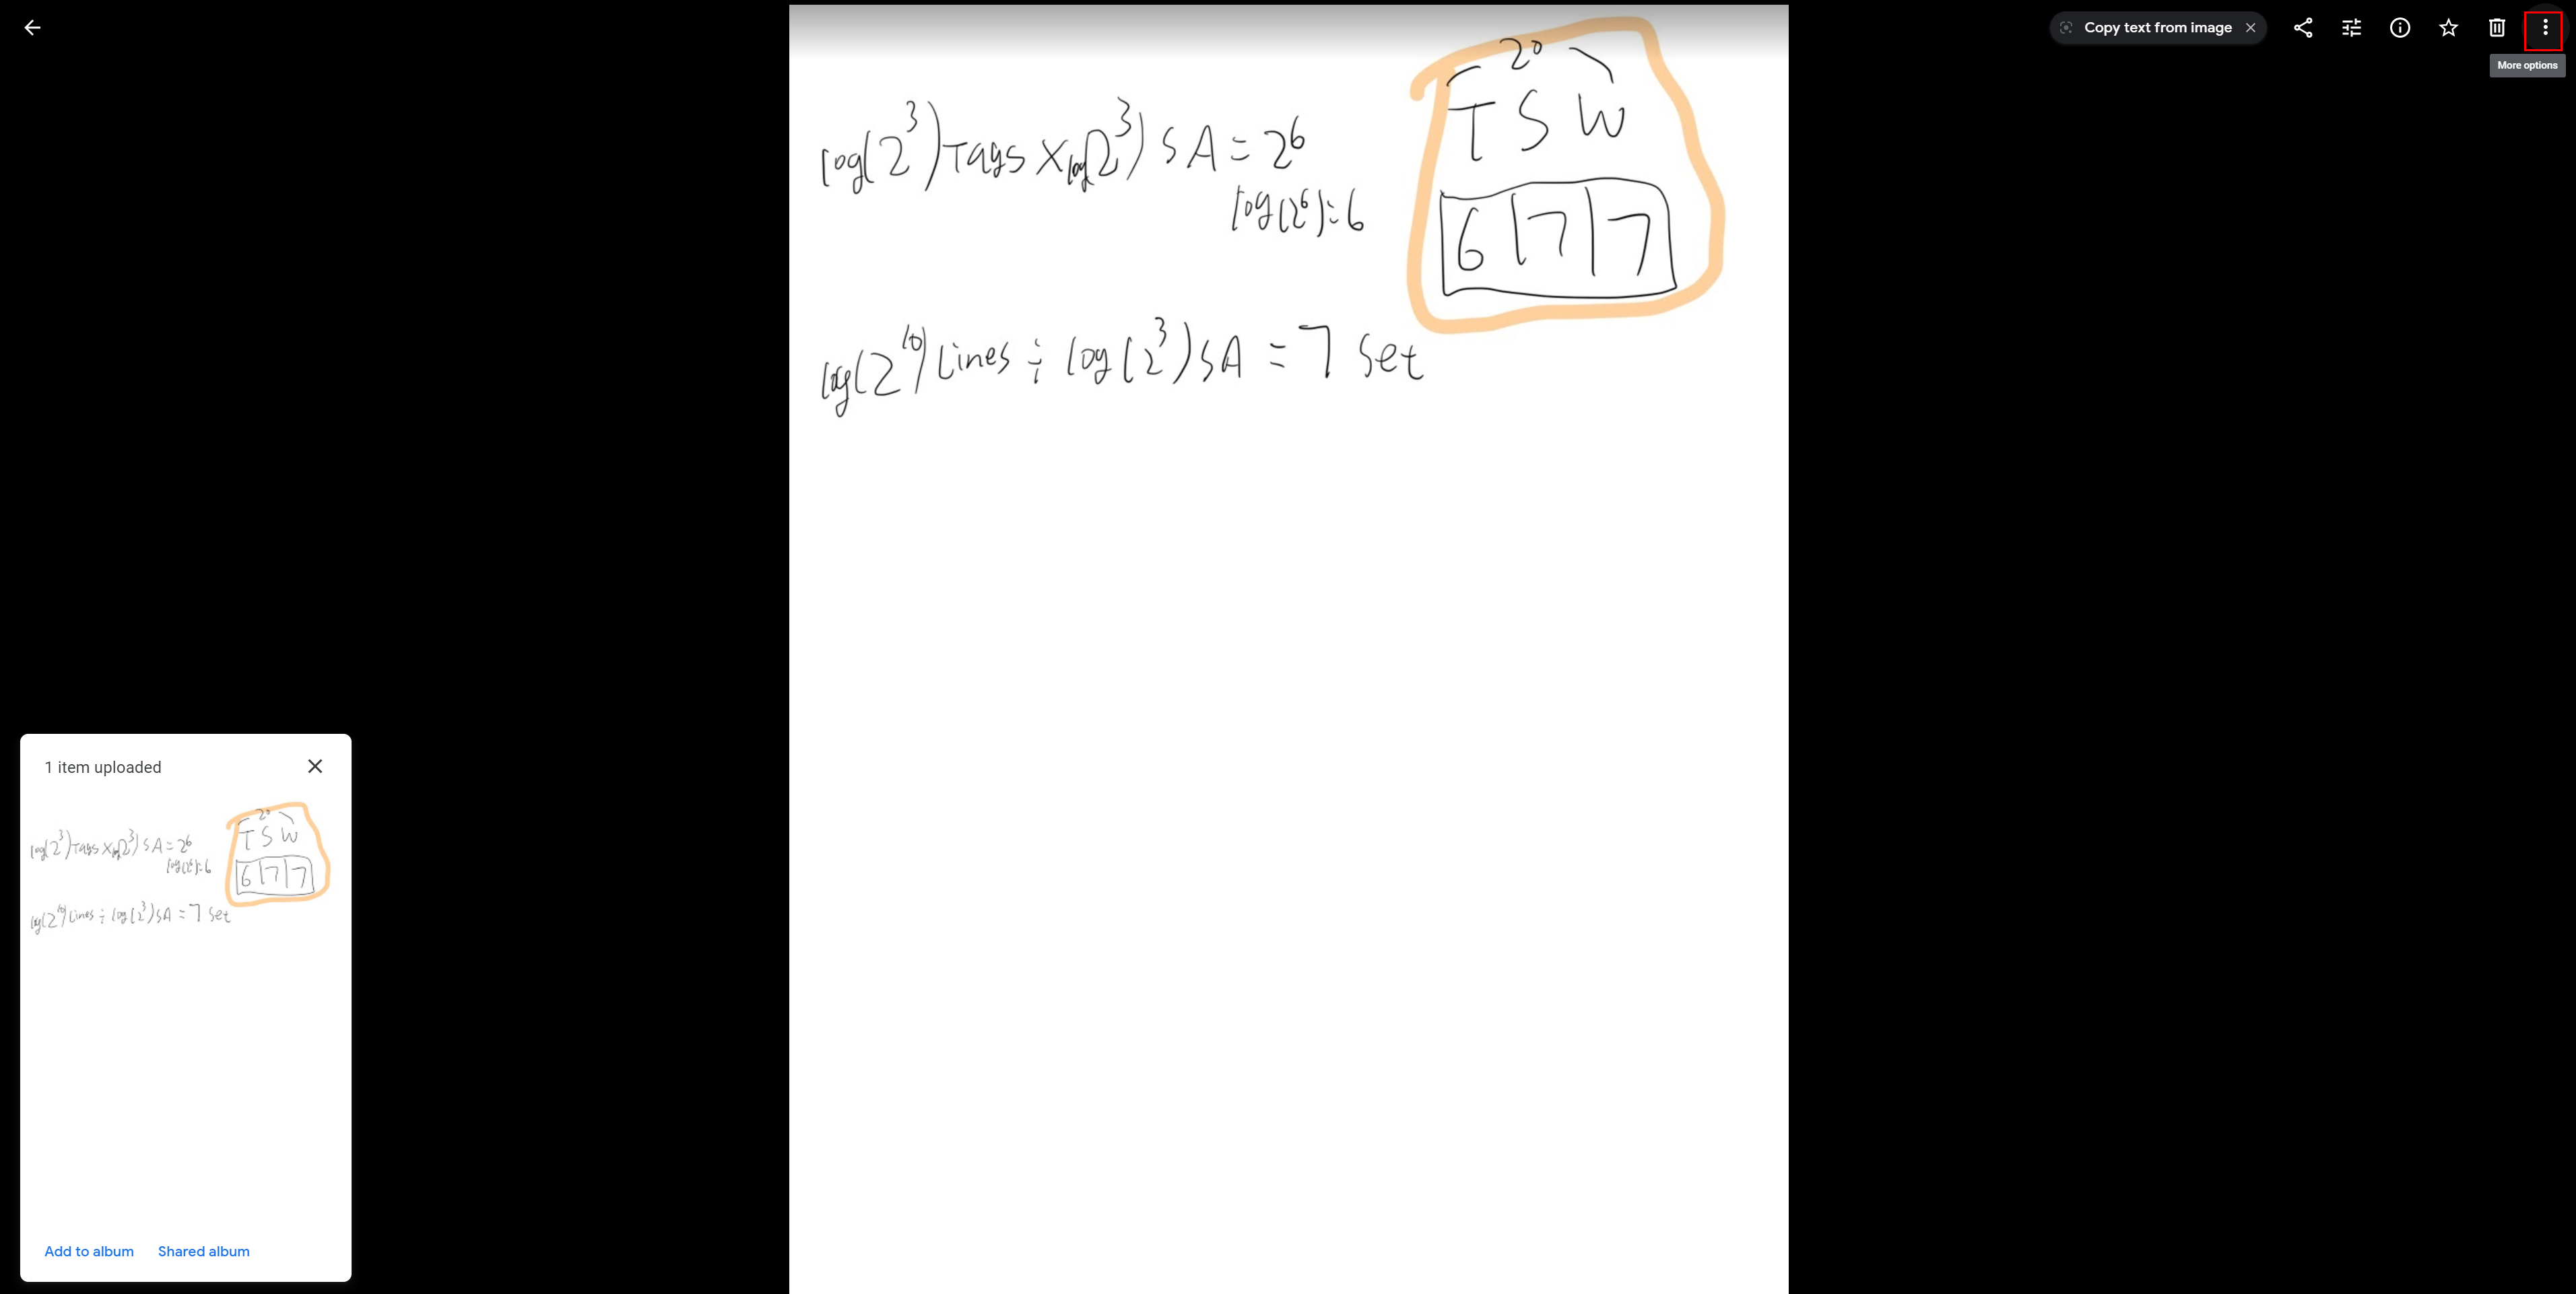 Copy text from image
More options
20
T S W
6 | 7 | 7
log(2^3) Tags x log(2^3) SA = 2^6
log(2^6) = 6
log(2^10) Lines ÷ log(2^3) SA = 7 Set
1 item uploaded
20
T S W
6 | 7 | 7
log(2^3) Tags x log(2^3) SA = 2^6
log(2^6) = 6
log(2^10) Lines ÷ log(2^3) SA = 7 Set
Add to album Shared album